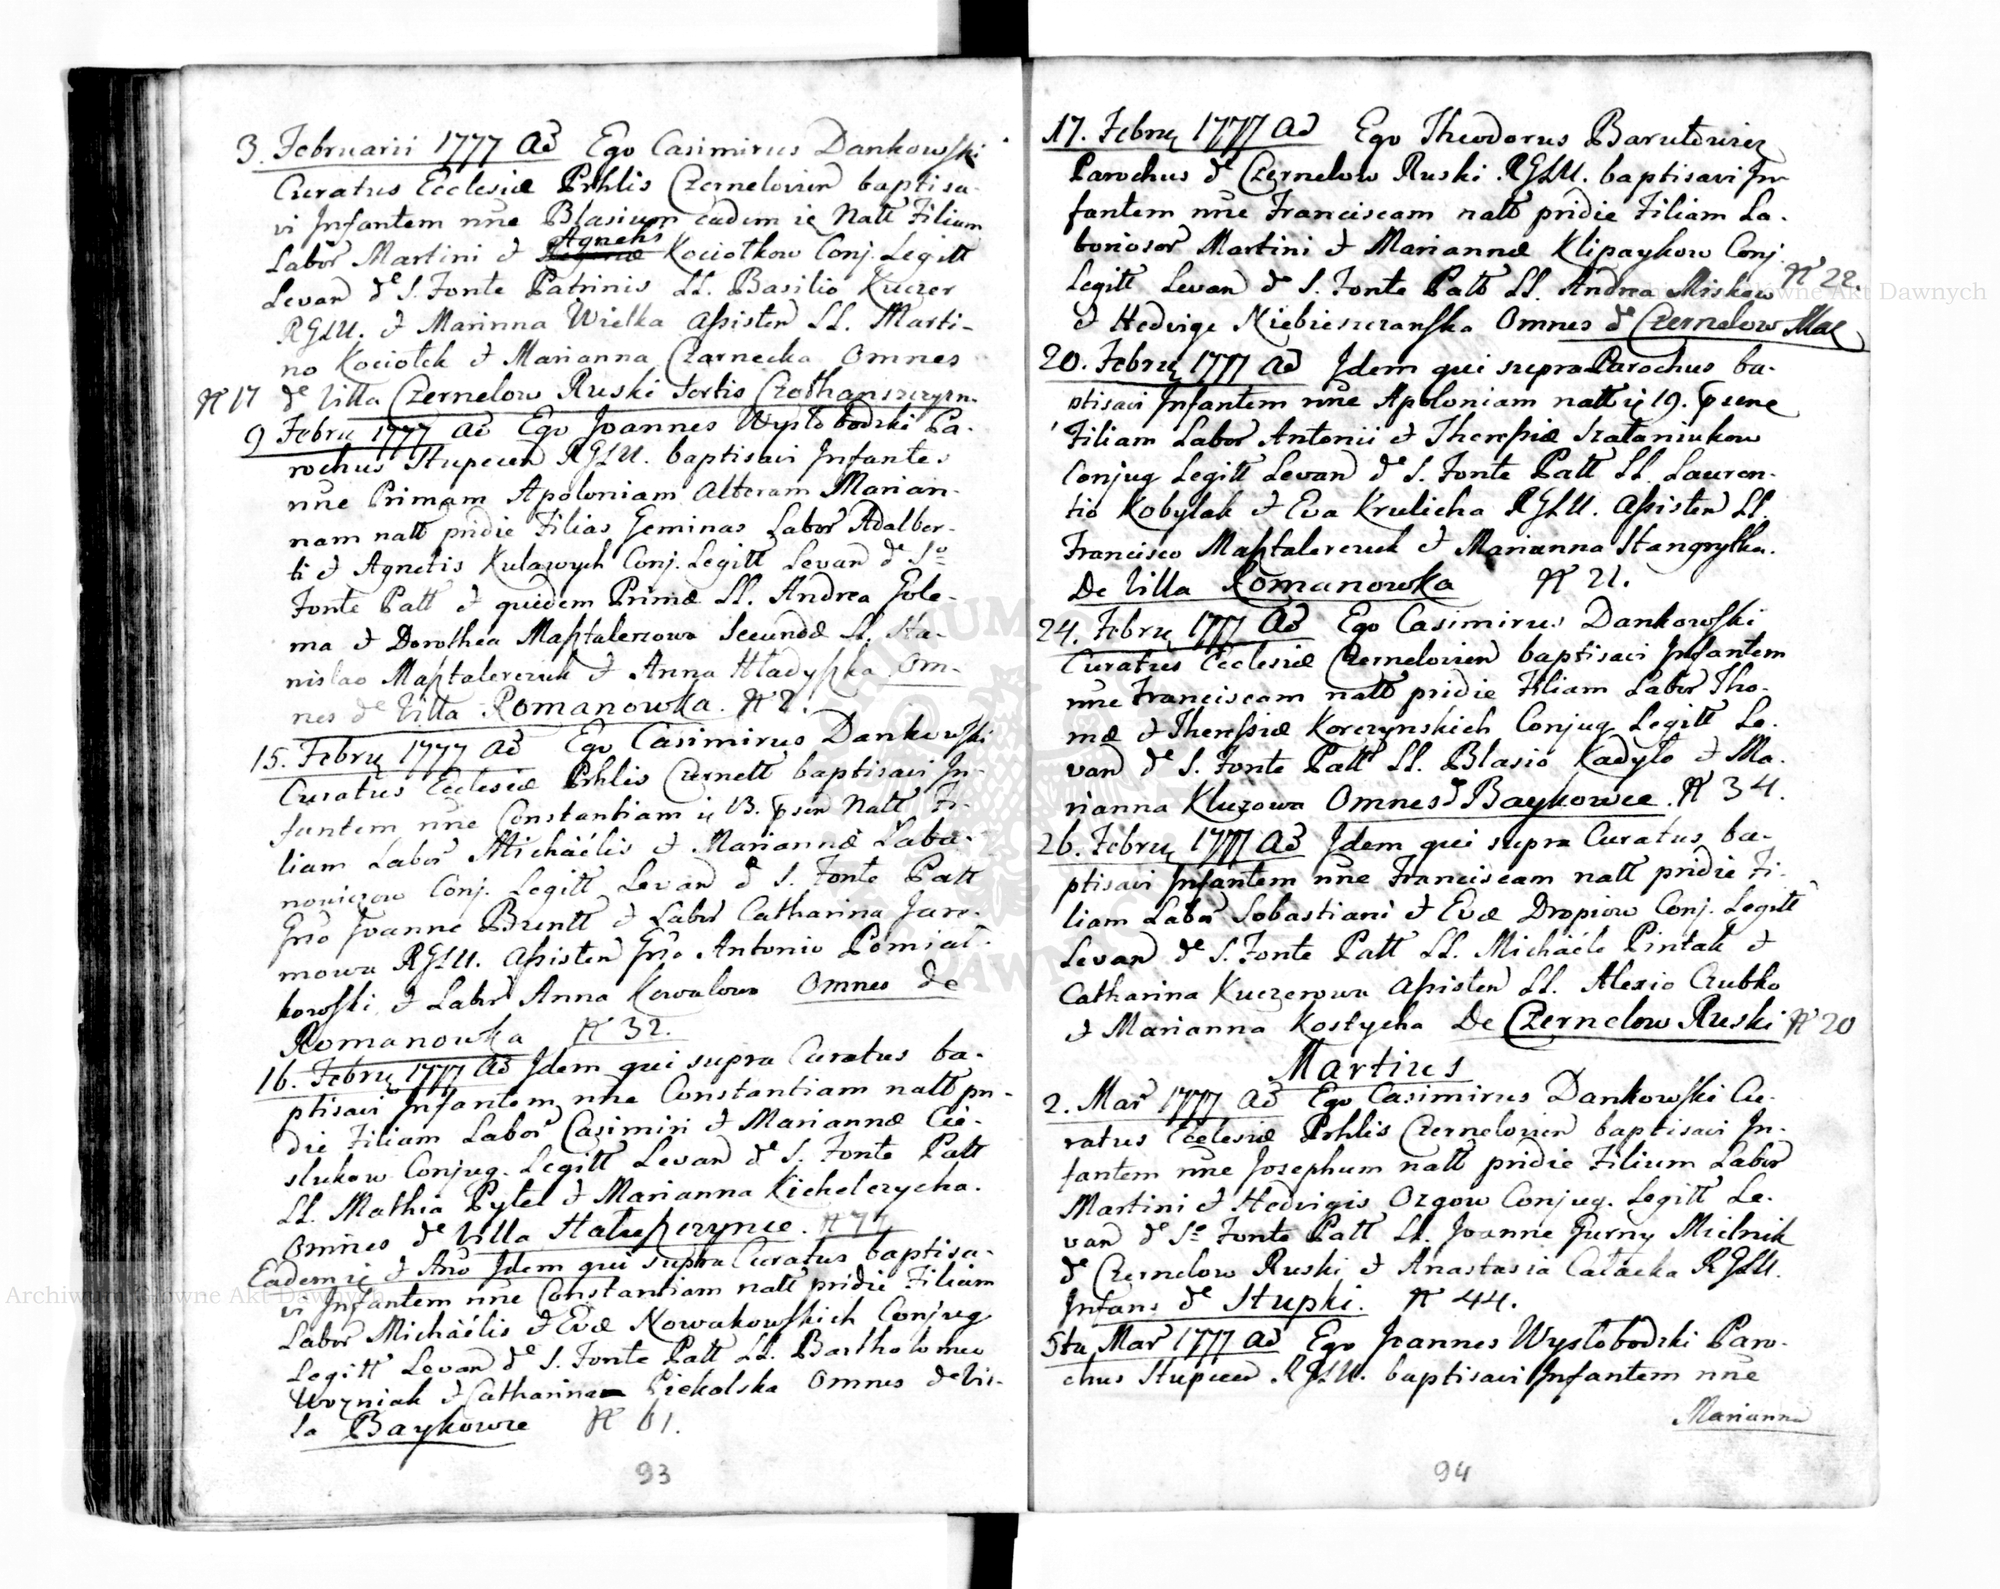 3. Februarii 1777 Ad Ego Casimirus Dankowski
Curatus Ecclesiæ Prhlis Czernelovien baptisa-
vi Infantem nne Blasium eadem ie Natt Filium
Agnetis
Labor Martini et Kociołkow Conj. Legitt
Levan de S. Fonte Patrinis LL. Basilio Kuczer
RGLU. et Marinna Wielka Assisten LL. Marti-
no Kociołek et Marianna Czarnecka Omnes
N 17 de Villa Czernelow Ruski Sortis
9 Febru 1777 Ad Ego Joannes Wysłobodzki Pa-
rochus Stupecen RGLU. baptisavi Infantes
nne Primam Apoloniam Alteram Marian-
nam natt pridie Filias Geminas Labor Adalber-
ti et Agnetis Kulawych Conj. Legitt Levan de So
Fonte Patt et quidem Primæ LL. Andrea Gole-
ma et Dorothea Masztalerzowa Secundæ LL. Sta-
nislao Masztalerczuk et Anna Hładyszka Om-
nes de Villa Romanowka. N 2.
15. Febru 1777 Ad Ego Casimirus Dankowski
Curatus Ecclesiæ Prhlis Czernell baptisavi In-
fantem nne Constantiam ie 13. psen Natt Fi-
liam Labor Michaëlis et Mariannæ Laba-
noniczow Conj. Legitt Levan d S. Fonte Patt
Gnso Joanne Brentt et Labor Catharina Jaro-
mowa RGLU. Assisten Gnso Antonio Pomiat-
kowski et Labor Anna Kowalowa Omnes de
Romanowka N 32.
16. Febru 1777 Ad Idem qui supra Curatus ba-
ptisavi Infantem nne Constantiam natt pri-
die Filiam Labor Casimiri et Mariannæ Cie-
slukow Conjug. Legitt Levan de S. Fonte Patt
LL. Mathia Pytel et Marianna Kichelczycha.
Omnes de Villa Stałuszczynce. N 74
Eadem ie et Ano Idem qui supra Curatus baptisa-
vi Infantem nne Constantiam natt pridie Filiam
Labor Michaëlis et Evæ Nowakowskich Conjug
Legitt Levan de S. Fonte Patt LL. Bartholomeo
Wozniak et Catharina Piekolska Omnes de Vil-
la Baykowce N 61.
93
17. Febru 1777 Ad Ego Theodorus Barutowicz
Parochus de Czernelow Ruski RGLU. baptisavi In-
fantem nne Franciscam natt pridie Filiam La-
boriosor Martini et Mariannæ Klipaykow Conj.
Legitt Levan de S. Fonte Patt LL. Andrea Miskow N 22.
et Hedvige Niebieszczanska Omnes de Czernelow Maz
20. Febru 1777 Ad Idem qui supra Parochus ba-
ptisavi Infantem nne Apoloniam natt ie 19. psene
Filiam Labor Antonii et Theressiæ Szataniukow
Conjug Legitt Levan de S. Fonte Patt LL. Lauren-
tio Kobylak et Eva Krulicha RGLU. Assisten LL.
Francisco Masztalerczuk et Marianna Stangrytka.
De Villa Romanowka N 21.
24. Febru 1777 Ad Ego Casimirus Dankowski
Curatus Ecclesiæ Czernelovien baptisavi Infantem
nne Franciscam natt pridie Filiam Labor Tho-
mæ et Theressiæ Korczynskich Conjug Legitt Le-
van de S. Fonte Patt LL. Blasio Kadyło et Ma-
rianna Kluzowa Omnes d Baykowce. N 34.
26. Febru 1777 Ad Idem qui supra Curatus ba-
ptisavi Infantem nne Franciscam natt pridie Fi-
liam Labor Sebastiani et Evæ Dropiow Conj. Legitt
Levan de S. Fonte Patt LL. Michaële Pintak et
Catharina Kuczerowa Assisten LL. Alexio Czubko
et Marianna Kostycha De Czernelow Ruski N 20
Martius
2. Mar 1777 Ad Ego Casimirus Dankowski Cu-
ratus Ecclesiæ Prhlis Czernelovien baptisavi In-
fantem nne Josephum natt pridie Filium Labor
Martini et Hedvigis Ozgow Conjug. Legitt Le-
van de So Fonte Patt LL. Joanne Gurny Mielnik
de Czernelow Ruski et Anastasia Catacka RGLU.
Infans de Stupki. N 44.
5ta Mar 1777 Ad Ego Joannes Wysłobodzki Paro-
chus Stupecen RGLU. baptisavi Infantem nne
Marianna
94
Archiwum Główne Akt Dawnych